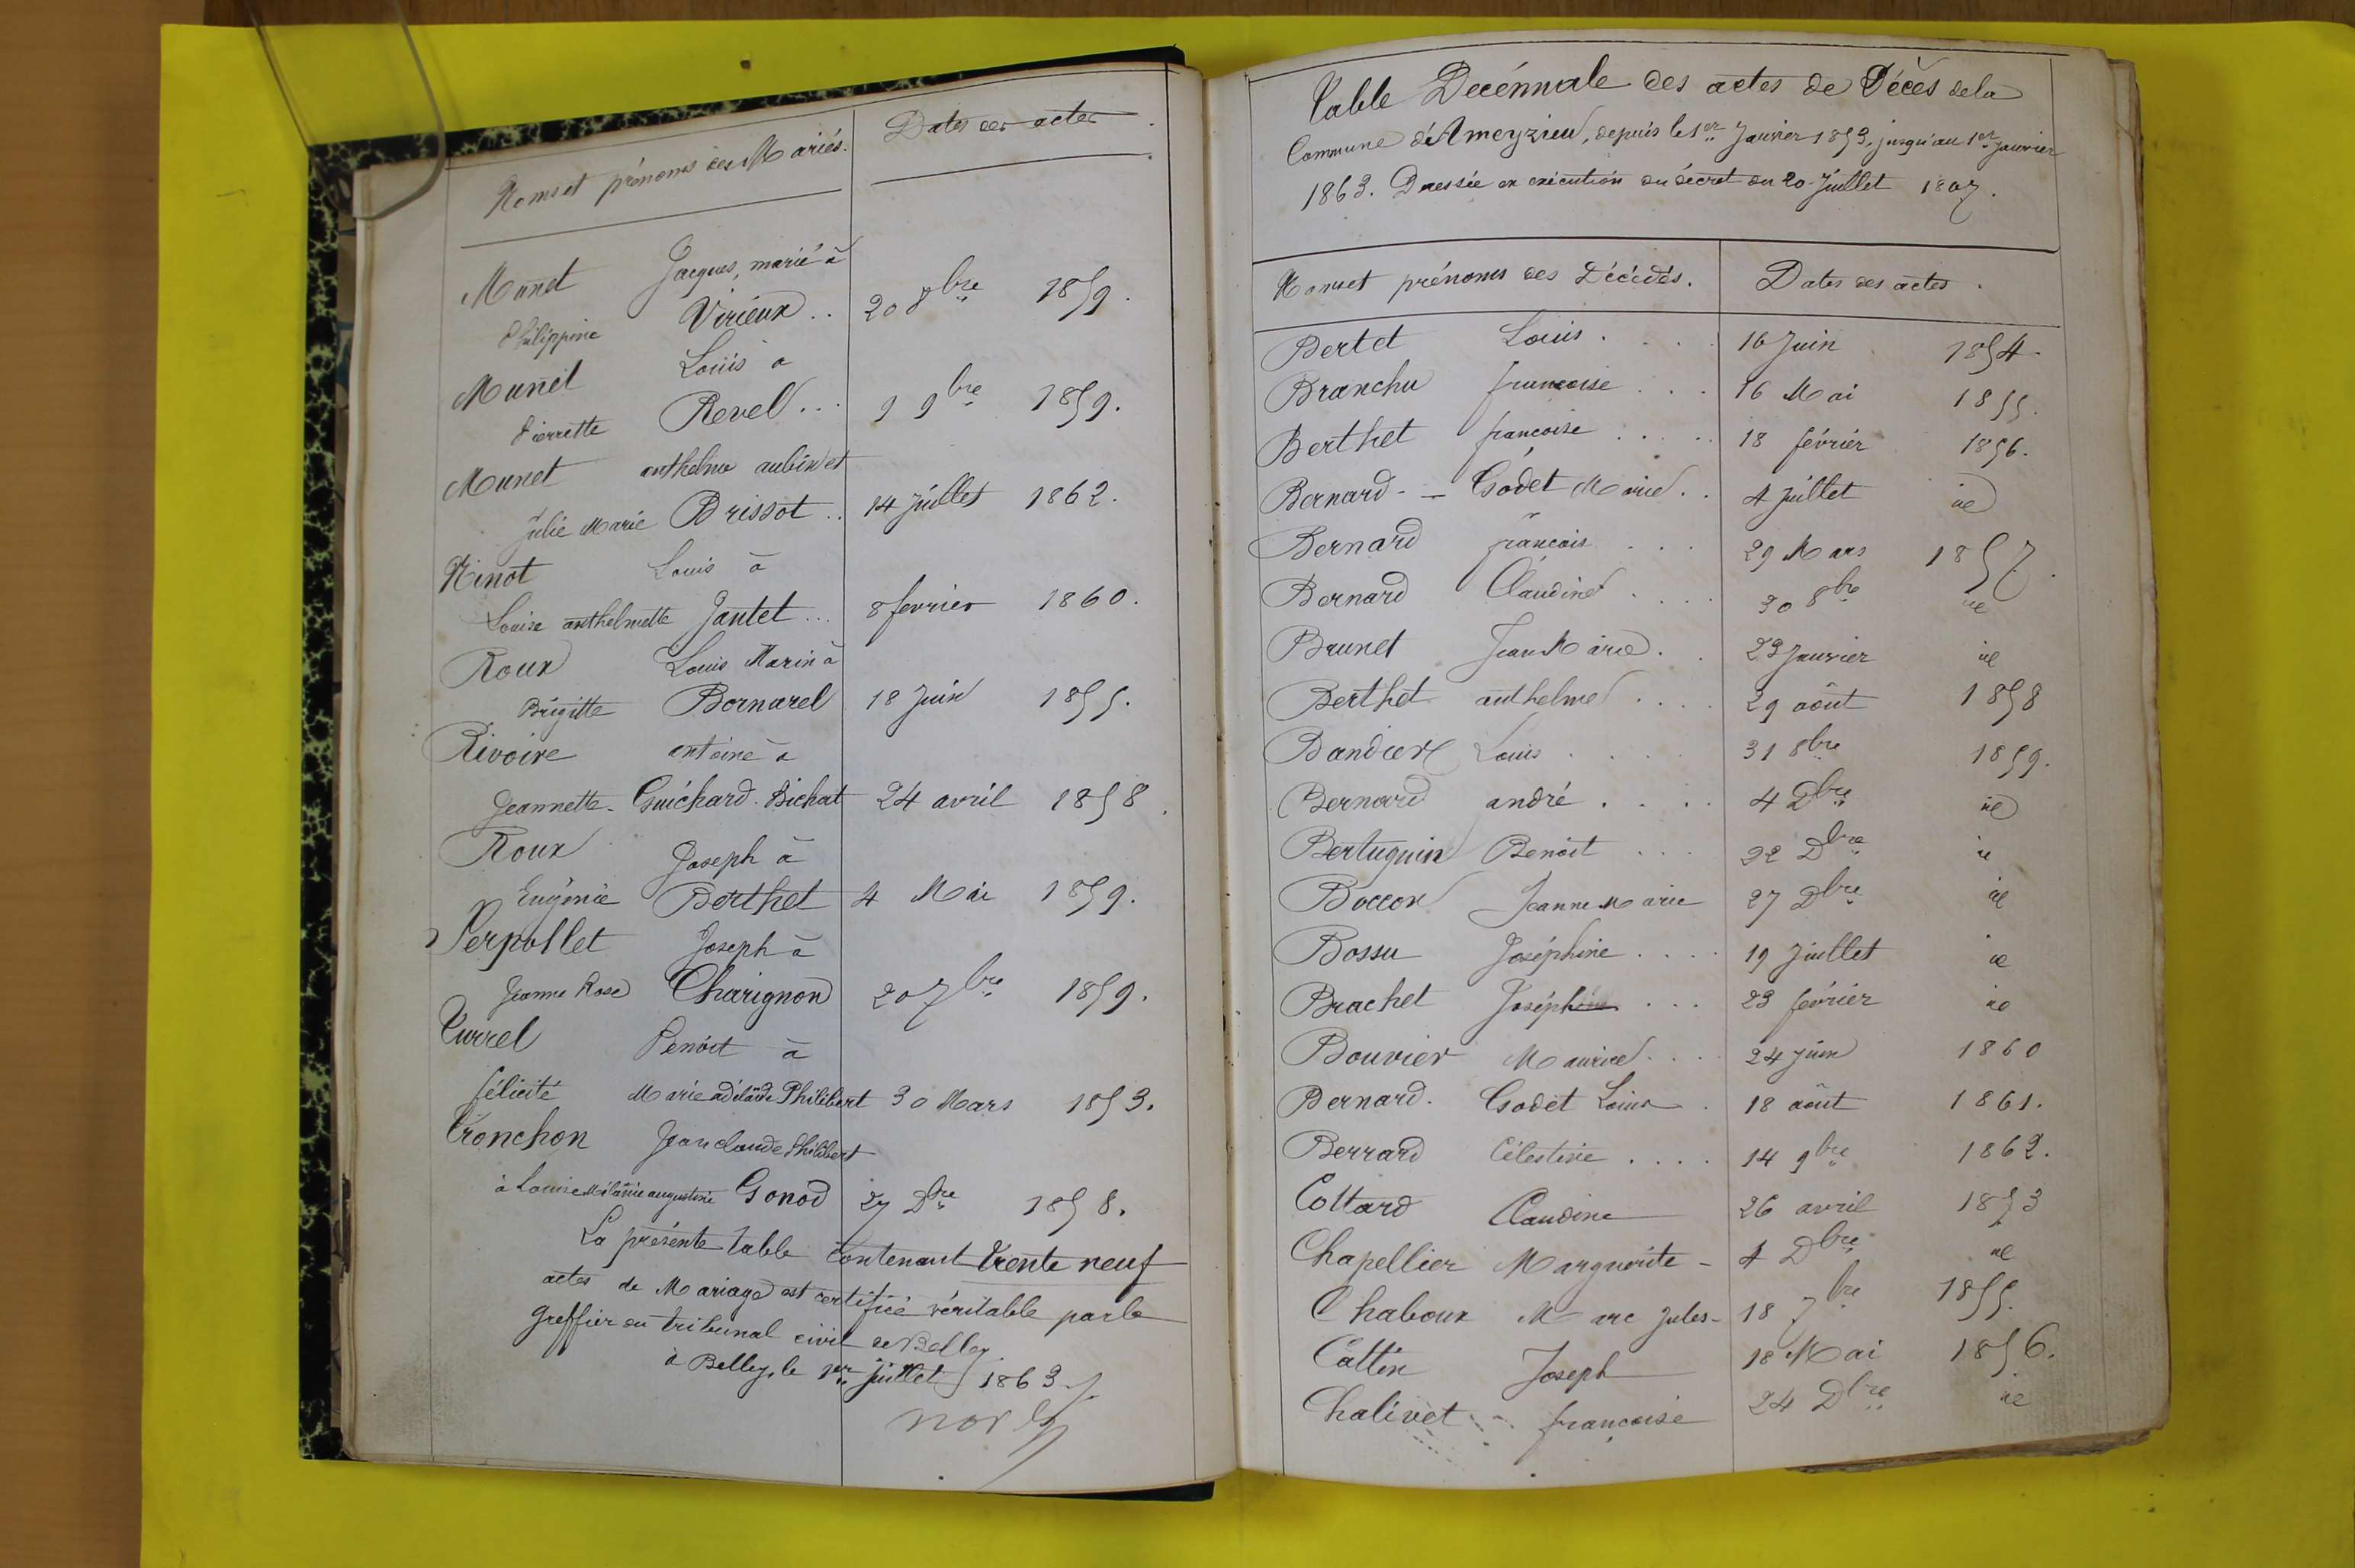 Noms et prénoms des Mariés. Dates des actes.
Munet Jacques, marié à
Philippine Virieux .. 20 8bre 1859.
Munet Louis à
Pierrette Revel ... 9 9bre 1859.
Munet anthelme aubin et
Julie Marie Brissot .. 14 Juillet 1862.
Ninot Louis à
Louise anthelmette Jantet ... 8 fevrier 1860.
Roux Louis Marin à
Brigitte Bornarel 18 Juin 1855.
Rivoire antoine à
Jeannette - Guichard-Bichat 24 avril 1858.
Roux Joseph à
Eugénie Berthet 4 Mai 1859.
Serpollet Joseph à
Jeanne Rose Charignon 20 7bre 1859.
Turrel Benoit à
félicité Marie adélaïde Philibert 30 Mars 1853.
Tronchon Jean claude Philibert
à Louise Mélanie augustine Gonod 27 Dbre 1858.
La présente table contenant trente neuf
actes de Mariage est certifiée véritable par le
Greffier du tribunal civil de Belley
à Belley, le 1er Juillet 1863
Table Decénnale des actes de Décès de la
Commune d'Ameyzieu, depuis le 1er Janvier 1853, jusqu'au 1er Janvier
1863. Dressée en exécution du décret du 20 Juillet 1807.
Noms et prénoms des Décédés. Dates des actes.
Bertet Louis .... 16 Juin 1854.
Branchu francoise ... 16 Mai 1855.
Berthet françoise .... 18 février 1856.
Bernard - Godet Marie .. 4 Juillet id
Bernard françois ... 29 Mars 1857.
Bernard Claudine .... 30 8bre id
Brunet Jean Marie .. 23 Janvier id
Berthet anthelme .... 29 août 1858
Bandier Louis .... 31 8bre 1859.
Bernard andré .... 4 Dbre id
Bertuguin Benoit ... 22 Dbre id
Boccon Jeanne Marie 27 Dbre id
Bossu Joséphine .... 19 Juillet id
Brachet Joséph ... 23 février id
Bouvier Maurice .... 24 Juin 1860
Bernard - Godet Louis . 18 août 1861.
Berrard Célestine .... 14 9bre 1862.
Cottard Claudine 26 avril 1853
Chapellier Marguerite - 4 Dbre id
Chaboux Marc Jules - 18 7bre 1855.
Cattin Joseph 18 Mai 1856.
Chalivet françoise 24 Dbre id